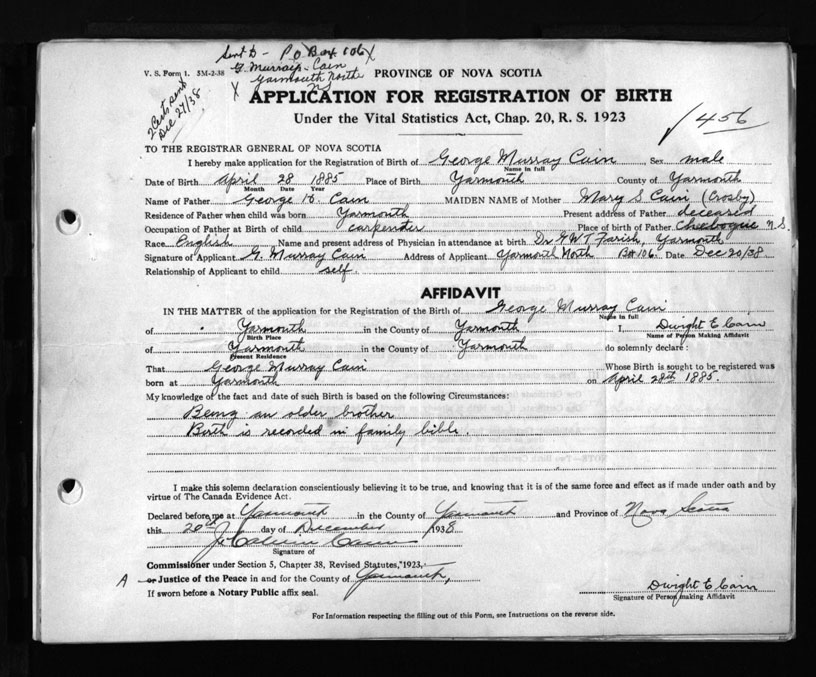 Sent to - P O Box 106 X
V. S. Form 1. 5M-2-38
G. Murray Cain
Yarmouth North
N S
PROVINCE OF NOVA SCOTIA
2 Certs sent
Dec 27/38
X APPLICATION FOR REGISTRATION OF BIRTH
Under the Vital Statistics Act, Chap. 20, R. S. 1923
√456
TO THE REGISTRAR GENERAL OF NOVA SCOTIA
I hereby make application for the Registration of Birth of George Murray Cain Sex male
Name in full
Date of Birth April 28 1885 Place of Birth Yarmouth County of Yarmouth
Month Date Year
Name of Father George H. Cain MAIDEN NAME of Mother Mary S Cain (Crosby)
Residence of Father when child was born Yarmouth Present address of Father deceased
Occupation of Father at Birth of child carpenter Place of birth of Father Chebogue N.S.
Race English Name and present address of Physician in attendance at birth Dr G W T Farish, Yarmouth
Signature of Applicant G. Murray Cain Address of Applicant Yarmouth North Bx 106. Date Dec 20/38
Relationship of Applicant to child self.
AFFIDAVIT
IN THE MATTER of the application for the Registration of the Birth of George Murray Cain
Name in full
of Yarmouth in the County of Yarmouth I, Dwight E Cain
Birth Place Name of Person Making Affidavit
of Yarmouth in the County of Yarmouth do solemnly declare:
Present Residence
That George Murray Cain Whose Birth is sought to be registered was
born at Yarmouth on April 28th 1885.
My knowledge of the fact and date of such Birth is based on the following Circumstances:
Being an older brother
Birth is recorded in family bible.
I make this solemn declaration conscientiously believing it to be true, and knowing that it is of the same force and effect as if made under oath and by
virtue of The Canada Evidence Act.
Declared before me at Yarmouth in the County of Yarmouth and Province of Nova Scotia
this 20th day of December 1938
Signature of
Commissioner under Section 5, Chapter 38, Revised Statutes, 1923,
A or Justice of the Peace in and for the County of Yarmouth,
Dwight E Cain
If sworn before a Notary Public affix seal.
Signature of Person making Affidavit
For Information respecting the filling out of this Form, see Instructions on the reverse side.